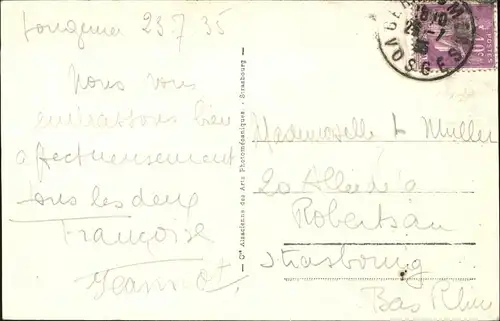 Longemer 23.7.35
Nous vous
embrassons bien
affectueusement
tous les deux
Françoise
Jeannot
Cie Alsacienne des Arts Photomécaniques - Strasbourg
VOSGES
Mademoiselle L Muller
20 Allée
Robertsau
Strasbourg
Bas Rhin